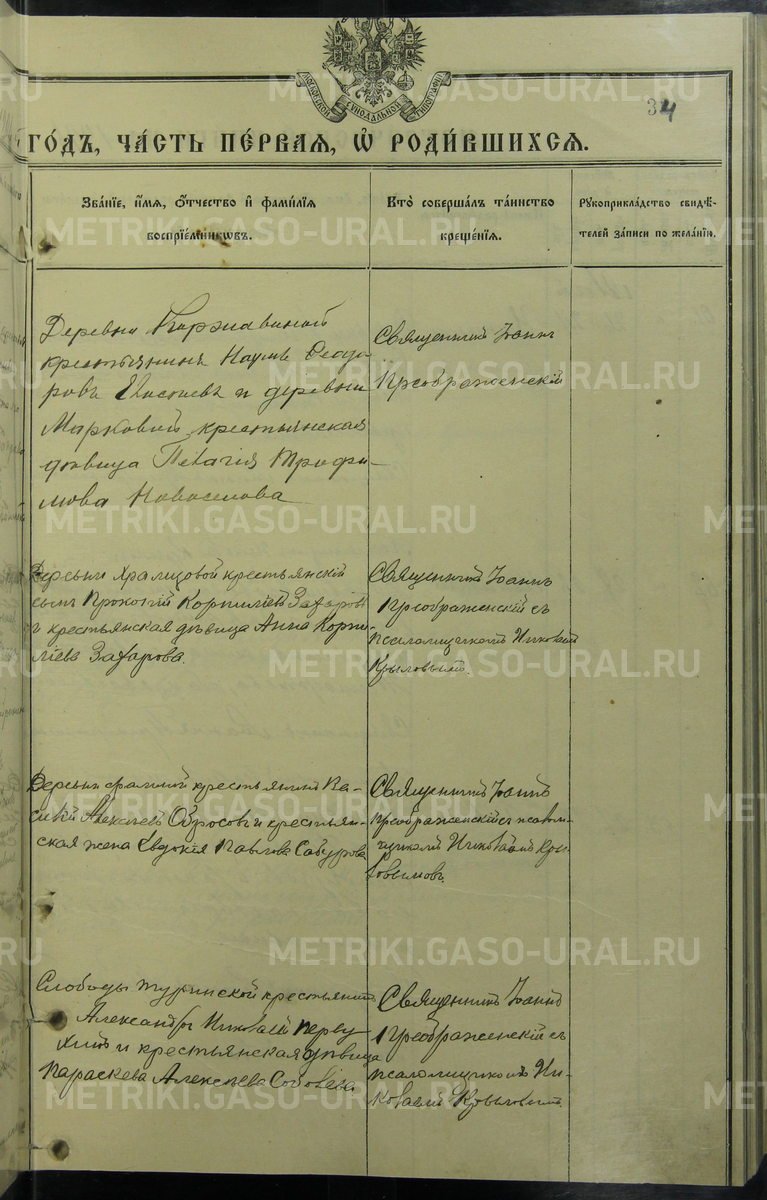 МОСКОВСКОЙ СѴНОДАЛЬНОЙ ТИПОГРАФІИ
34
ГО́ДЪ, ЧА́СТЬ ПЕ́РВАЯ, Ѡ҆ РОДИ́ВШИХСЯ.
Зва́нїе, и҆́мя, ѻ҆́тчество и҆ фами́лїя
воспрїе́мникѡвъ.
Кто̀ соверша́лъ та́инство
креще́нїя.
Рꙋкоприкла́дство свидѣ́-
телей за́писи по жела́нїю.
Деревни Коржавиной
крестьянинъ Наумъ Ѳеодо
ровъ и деревни
Марковой крестьянская
дѣвица Пелагія Трофи-
мова Новоселова
Священникъ Іоаннъ
Преображенскій
Деревни Храмцовой крестьянскій
сынъ Прокопій Корниліевъ Захаровъ
и крестьянская дѣвица Анна Корни
ліева Захарова.
Священникъ Іоаннъ
Преображенскій съ
псаломщикомъ Николаем
Крыловымъ.
Деревни крестьянинъ Ва-
силій Алексѣевъ Обросовъ и крестьян-
ская жена Евдокія Павлова Сабурова
Священникъ Іоаннъ
Преображенскій съ псалом-
щикомъ Николаемъ Кры-
ловымъ.
Слободы Туринской крестьянинъ
Александръ Николаевъ Перву
хинъ и крестьянская дѣвица
Параскева Алексѣева
Священникъ Іоаннъ
Преображенскій съ
псаломщикомъ Ни-
колаемъ Крыловымъ.
METRIKI.GASO-URAL.RU